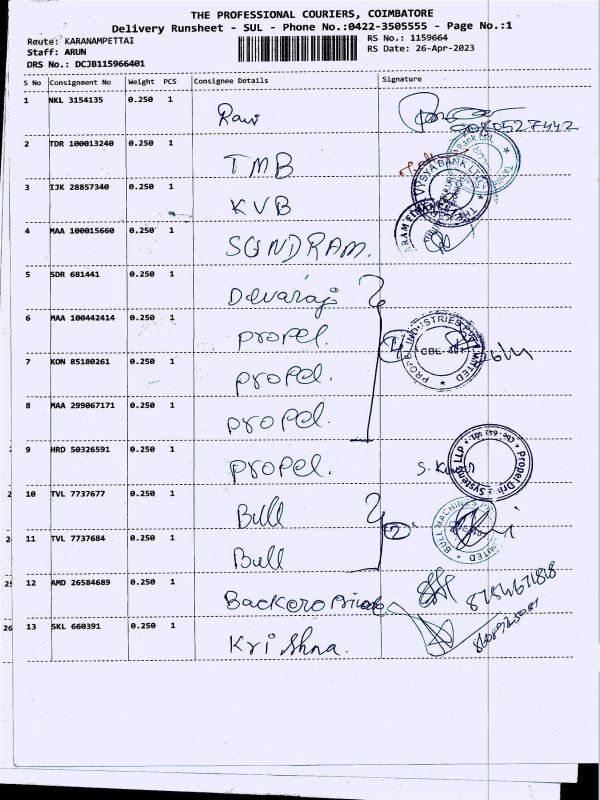 THE PROFESSIONAL COURIERS, COIMBATORE
Delivery Runsheet - SUL - Phone No.:0422-3505555 - Page No.:1
Route: KARANAMPETTAI
RS No.: 1159664
Staff: ARUN
RS Date: 26-Apr-2023
DRS No.: DCJB115966401
S No Consignment No Weight PCS Consignee Details Signature
1 NKL 3154135 0.250 1 Ravi
2 TDR 100013240 0.250 1 TMB
3 IJK 28857340 0.250 1 KVB
4 MAA 100015660 0.250 1 SUNDRAM.
5 SDR 681441 0.250 1 Devaraj
6 MAA 100442414 0.250 1 propel.
7 KON 85180261 0.250 1 propel.
8 MAA 299067171 0.250 1 propel.
9 HRD 50326591 0.250 1 propel. S. Kumar
10 TVL 7737677 0.250 1 Bull
2
11 TVL 7737684 0.250 1 Bull
12 AMD 26584689 0.250 1 8754671818
26 13 SKL 660391 0.250 1 Krishna.